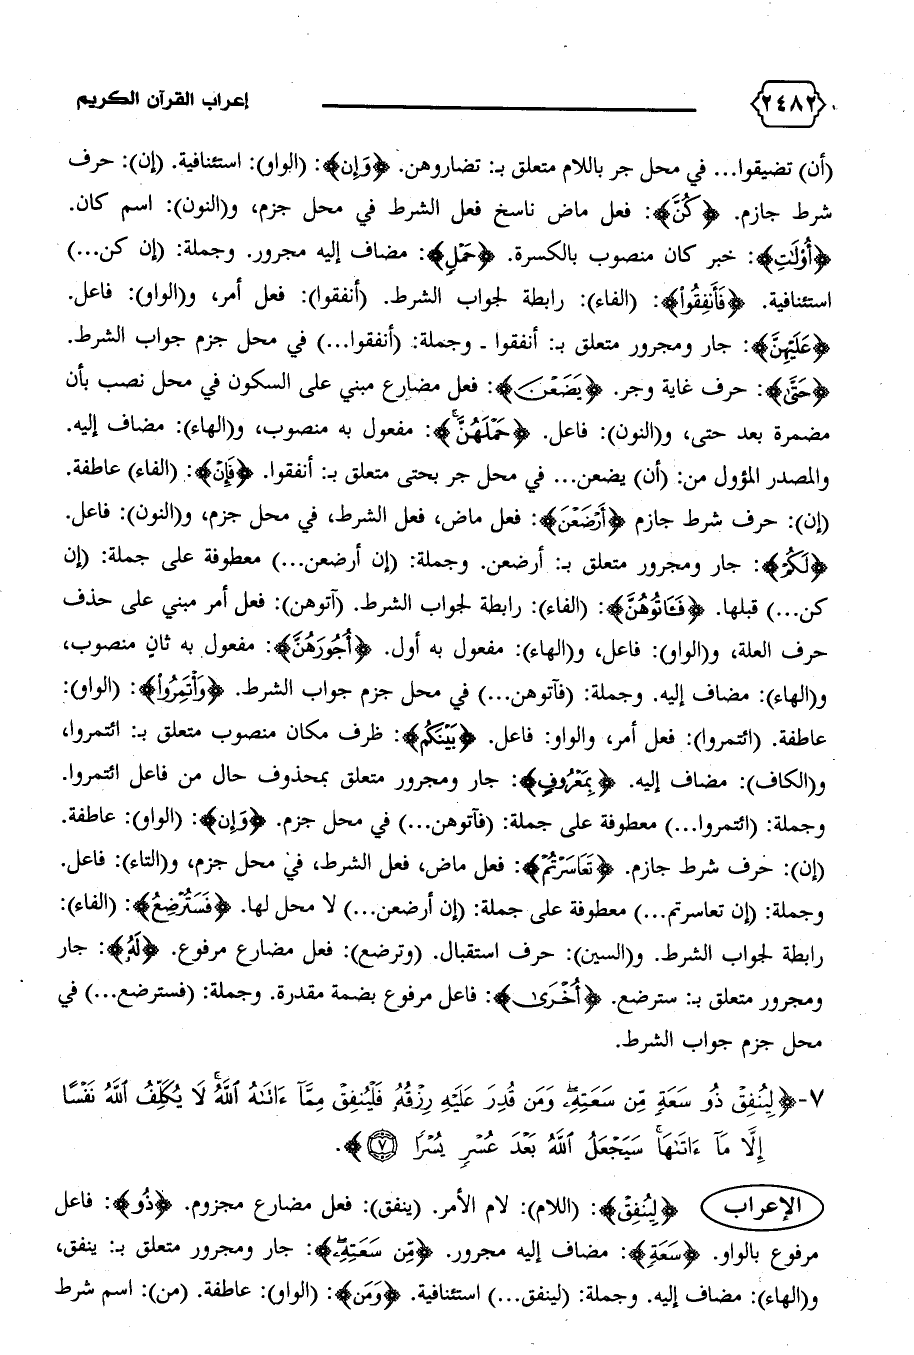 ٢٤٨٢ إعراب القرآن الكريم
(أن) تضيقوا... في محل جر باللام متعلق بـ: تضاروهن. ﴿وَإِن﴾: (الواو): استئنافية. (إن): حرف
شرط جازم. ﴿كُنَّ﴾: فعل ماض ناسخ فعل الشرط في محل جزم، و(النون): اسم كان.
﴿أُوْلَٰتِ﴾: خبر كان منصوب بالكسرة. ﴿حَمْلٍ﴾: مضاف إليه مجرور. وجملة: (إن كن...)
استئنافية. ﴿فَأَنفِقُواْ﴾: (الفاء): رابطة لجواب الشرط. (أنفقوا): فعل أمر، و(الواو): فاعل.
﴿عَلَيْهِنَّ﴾: جار ومجرور متعلق بـ: أنفقوا ـ وجملة: (أنفقوا...) في محل جزم جواب الشرط.
﴿حَتَّىٰ﴾: حرف غاية وجر. ﴿يَضَعْنَ﴾: فعل مضارع مبني على السكون في محل نصب بأن
مضمرة بعد حتى، و(النون): فاعل. ﴿حَمْلَهُنَّۚ﴾: مفعول به منصوب، و(الهاء): مضاف إليه.
والمصدر المؤول من: (أن) يضعن... في محل جر بحتى متعلق بـ: أنفقوا. ﴿فَإِنْ﴾: (الفاء) عاطفة.
(إن): حرف شرط جازم ﴿أَرْضَعْنَ﴾: فعل ماض، فعل الشرط، في محل جزم، و(النون): فاعل.
﴿لَكُمْ﴾: جار ومجرور متعلق بـ: أرضعن. وجملة: (إن أرضعن...) معطوفة على جملة: (إن
كن...) قبلها. ﴿فَـَٔاتُوهُنَّ﴾: (الفاء): رابطة لجواب الشرط. (آتوهن): فعل أمر مبني على حذف
حرف العلة، و(الواو): فاعل، و(الهاء): مفعول به أول. ﴿أُجُورَهُنَّ﴾: مفعول به ثانٍ منصوب،
و(الهاء): مضاف إليه. وجملة: (فآتوهن...) في محل جزم جواب الشرط. ﴿وَأْتَمِرُواْ﴾: (الواو):
عاطفة. (ائتمروا): فعل أمر، والواو: فاعل. ﴿بَيْنَكُم﴾: ظرف مكان منصوب متعلق بـ: ائتمروا،
و(الكاف): مضاف إليه. ﴿بِمَعْرُوفٍ﴾: جار ومجرور متعلق بمحذوف حال من فاعل ائتمروا.
وجملة: (ائتمروا...) معطوفة على جملة: (فآتوهن...) في محل جزم. ﴿وَإِن﴾: (الواو): عاطفة.
(إن): حرف شرط جازم. ﴿تَعَاسَرْتُمْ﴾: فعل ماض، فعل الشرط، في محل جزم، و(التاء): فاعل.
وجملة: (إن تعاسرتم...) معطوفة على جملة: (إن أرضعن...) لا محل لها. ﴿فَسَتُرْضِعُ﴾: (الفاء):
رابطة لجواب الشرط. و(السين): حرف استقبال. (وترضع): فعل مضارع مرفوع. ﴿لَهُۥ﴾: جار
ومجرور متعلق بـ: سترضع. ﴿أُخْرَىٰ﴾: فاعل مرفوع بضمة مقدرة. وجملة: (فسترضع...) في
محل جزم جواب الشرط.
٧-﴿لِيُنفِقْ ذُو سَعَةٍ مِّن سَعَتِهِۦۖ وَمَن قُدِرَ عَلَيْهِ رِزْقُهُۥ فَلْيُنفِقْ مِمَّآ ءَاتَىٰهُ ٱللَّهُۚ لَا يُكَلِّفُ ٱللَّهُ نَفْسًا
إِلَّا مَآ ءَاتَىٰهَاۚ سَيَجْعَلُ ٱللَّهُ بَعْدَ عُسْرٍ يُسْرًا ٧﴾.
الإعراب ﴿لِيُنفِقْ﴾: (اللام): لام الأمر. (ينفق): فعل مضارع مجزوم. ﴿ذُو﴾: فاعل
مرفوع بالواو. ﴿سَعَةٍ﴾: مضاف إليه مجرور. ﴿مِّن سَعَتِهِۦۖ﴾: جار ومجرور متعلق بـ: ينفق،
و(الهاء): مضاف إليه. وجملة: (لينفق...) استئنافية. ﴿وَمَن﴾: (الواو): عاطفة. (من): اسم شرط